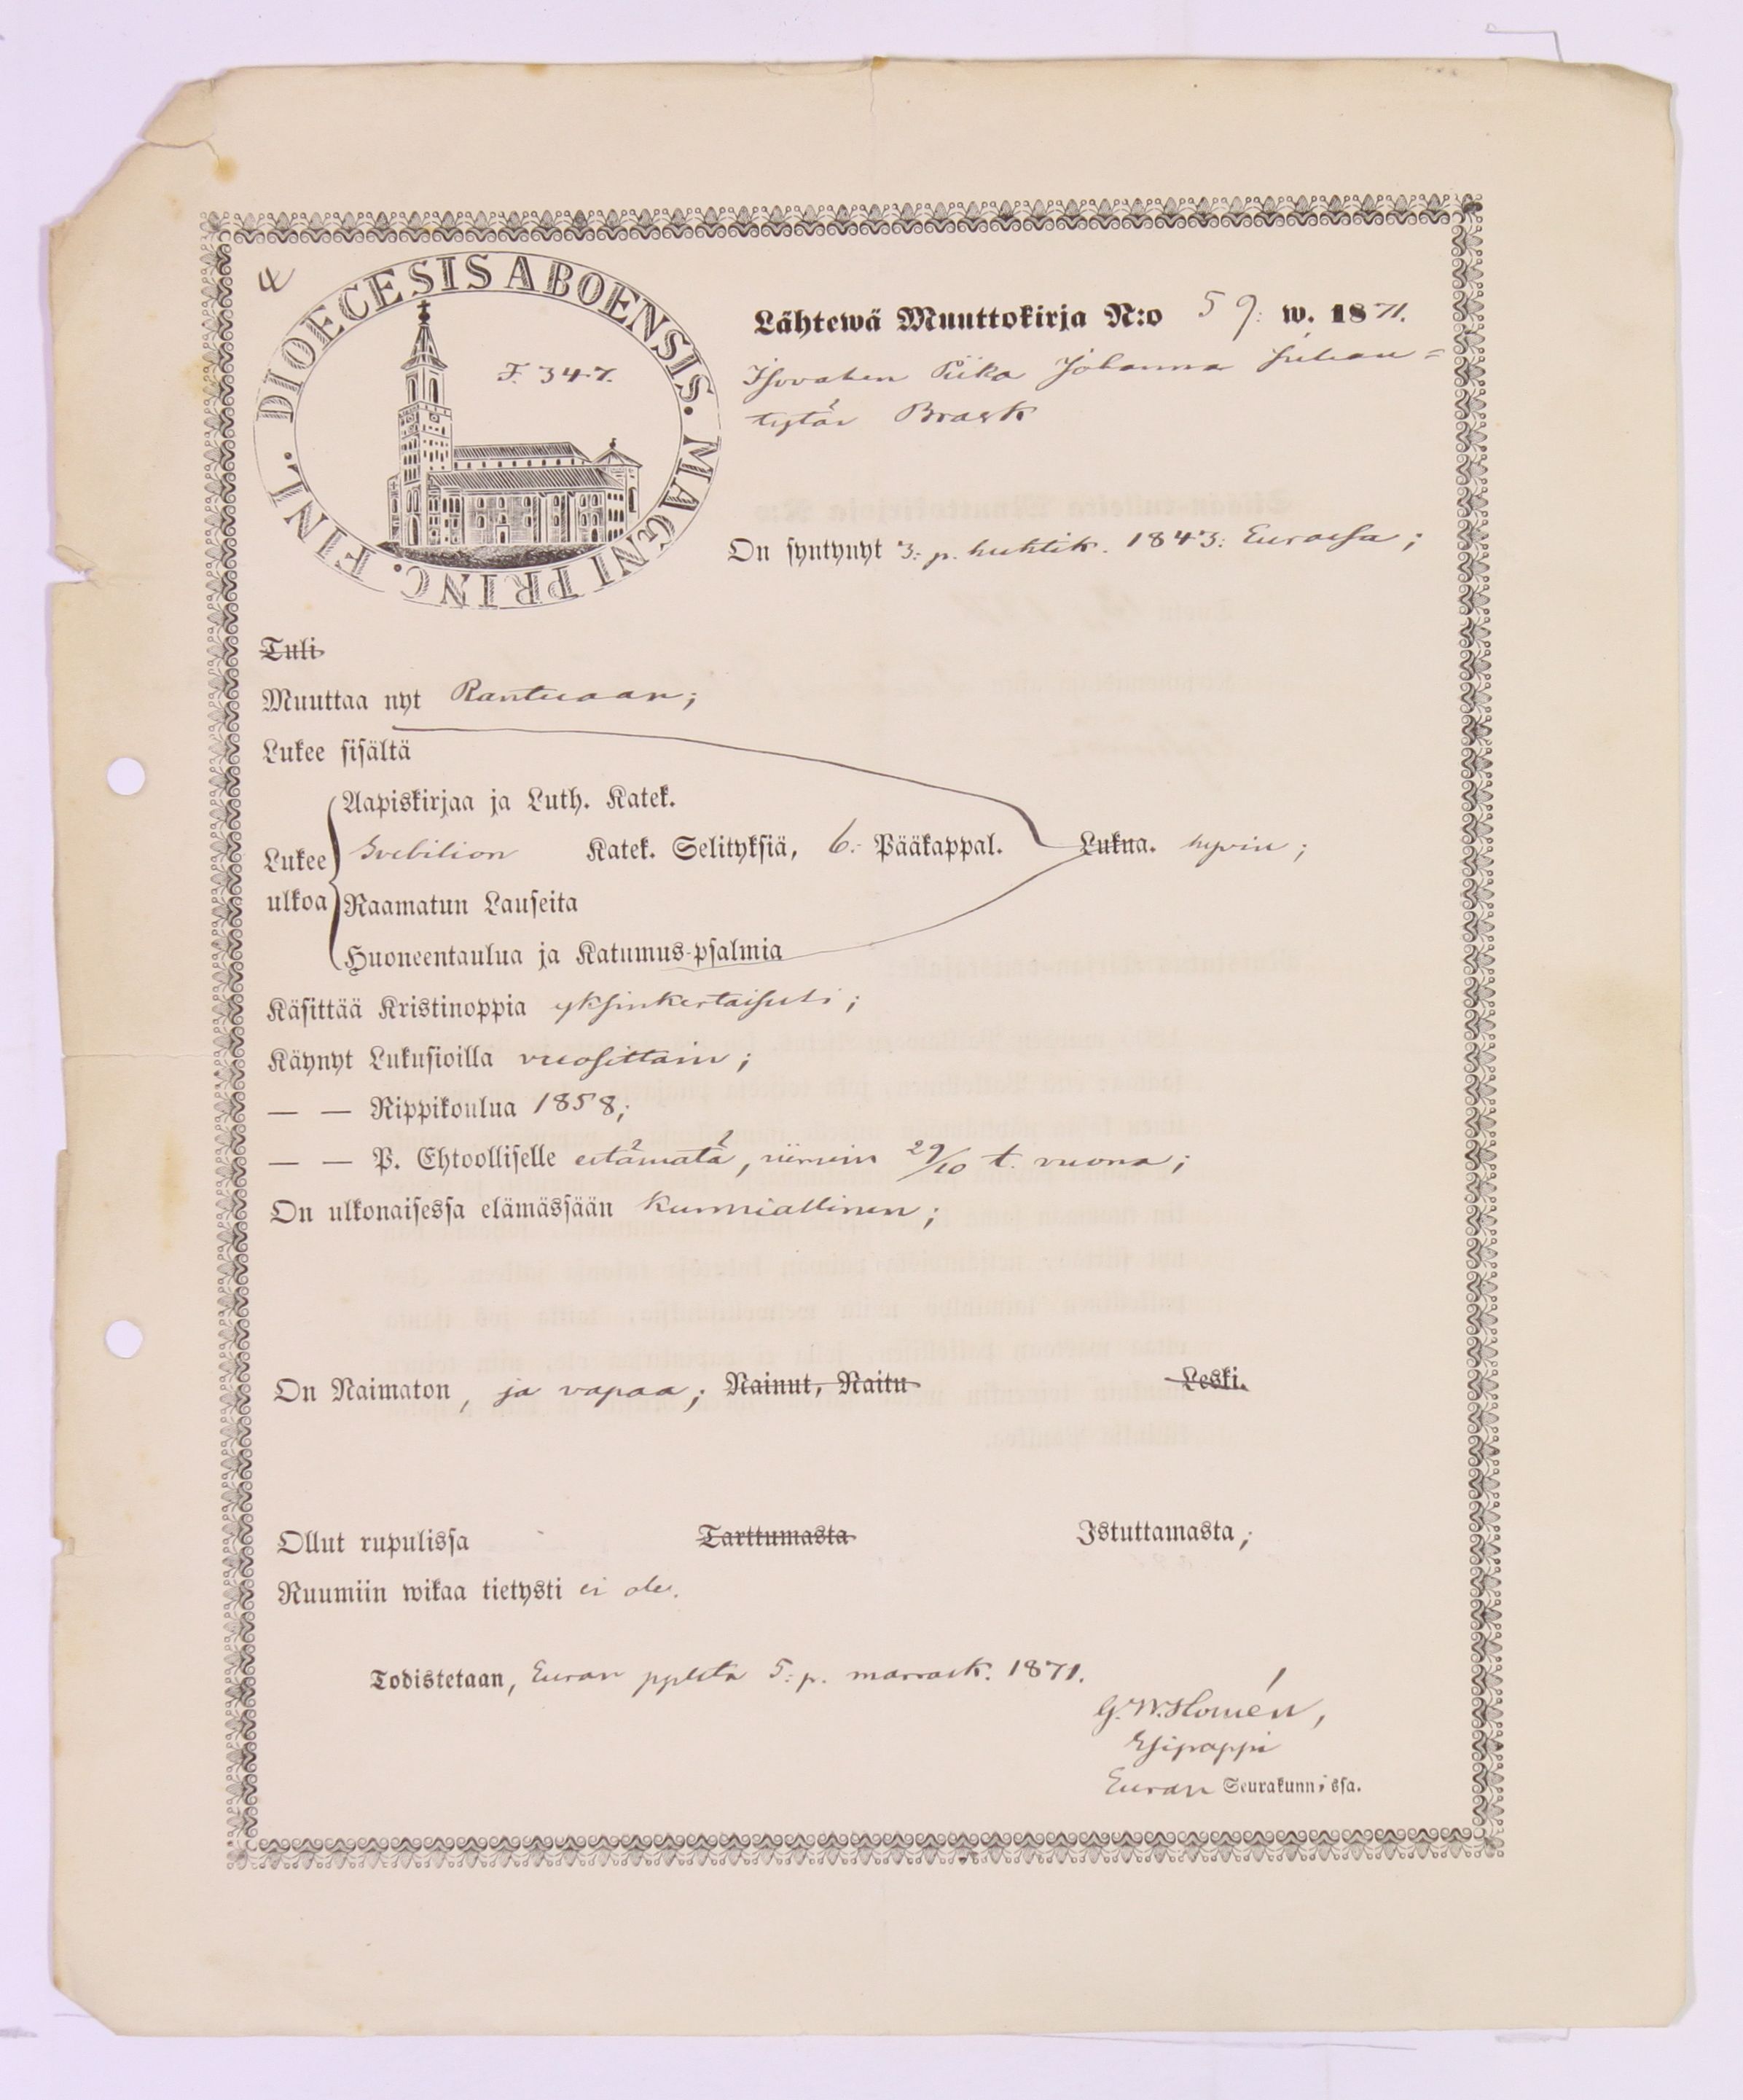 DIOECESIS ABOENSIS. MAGNI PRINC. FINL.
F. 347.
Lähtewä Muuttokirja N:o 59: w. 1871.
Isovahen Piika Johanna Juhan=
tytär Brask
On syntynyt 3: p. huhtik. 1843: Eurassa;
Tuli
Muuttaa nyt Rantuaan;
Lukee sisältä
Aapiskirjaa ja Luth. Katek.
Lukee ulkoa Svebilion Katek. Selityksiä, 6:- Pääkappal. Lukua. hyvin;
Raamatun Lauseita
Huoneentaulua ja Katumus-psalmia
Käsittää Kristinoppia yksinkertaisesti;
Käynyt Lukusioilla vuosittain;
— — Rippikoulua 1858;
— — P. Ehtoolliselle estämätä, viimein 29/10 t. vuona;
On ulkonaisessa elämässään kunniallinen;
On Naimaton, ja vapaa; Nainut, Naitu Leski.
Ollut rupulissa Tarttumasta Istuttamasta;
Ruumiin wikaa tietysti ei ole.
Todistetaan, Euran pplsta 5: p. marrask. 1871.
G. W. Homén,
Esipappi
Euran Seurakunnissa.